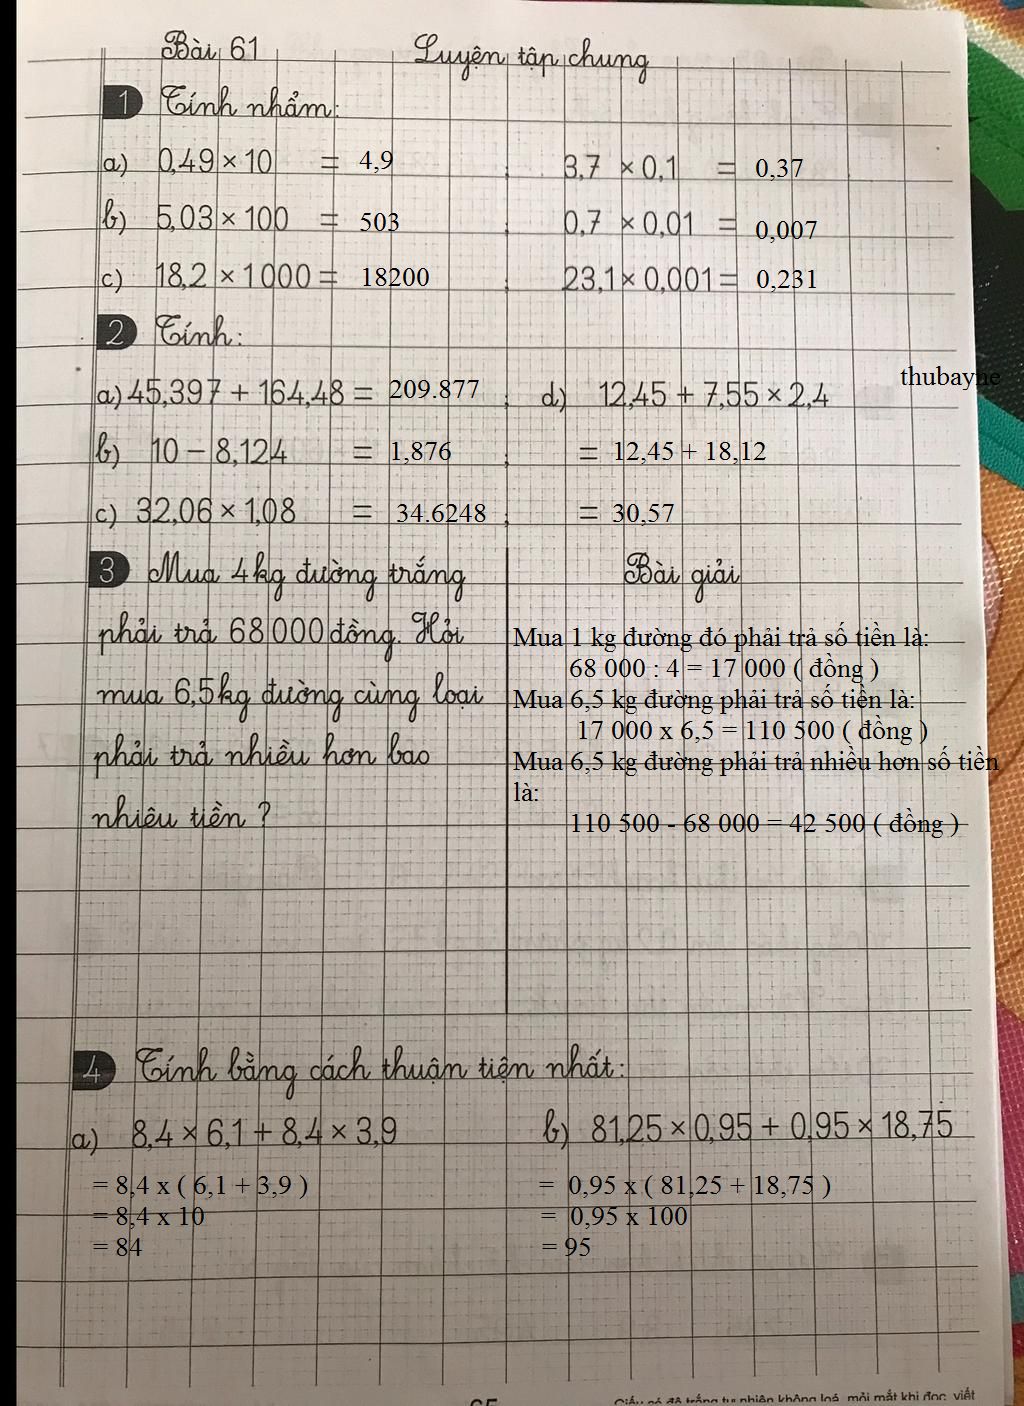 Bài 61 Luyện tập chung
1 Tính nhẩm:
a) 0,49 × 10 = 4,9 ; 3,7 × 0,1 = 0,37
b) 5,03 × 100 = 503 ; 0,7 × 0,01 = 0,007
c) 18,2 × 1000 = 18200 ; 23,1 × 0,001 = 0,231
2 Tính:
thubayhe
a) 45,397 + 164,48 = 209.877 ; d) 12,45 + 7,55 × 2,4
b) 10 - 8,124 = 1,876 ; = 12,45 + 18,12
c) 32,06 × 1,08 = 34.6248 ; = 30,57
3 Mua 4kg đường trắng
phải trả 68 000 đồng. Hỏi
mua 6,5kg đường cùng loại
phải trả nhiều hơn bao
nhiêu tiền ?
Bài giải
Mua 1 kg đường đó phải trả số tiền là:
68 000 : 4 = 17 000 ( đồng )
Mua 6,5 kg đường phải trả số tiền là:
17 000 x 6,5 = 110 500 ( đồng )
Mua 6,5 kg đường phải trả nhiều hơn số tiền
là:
110 500 - 68 000 = 42 500 ( đồng )
4 Tính bằng cách thuận tiện nhất:
a) 8,4 × 6,1 + 8,4 × 3,9 b) 81,25 × 0,95 + 0,95 × 18,75
= 8,4 x ( 6,1 + 3,9 ) = 0,95 x ( 81,25 + 18,75 )
= 8,4 x 10 = 0,95 x 100
= 84 = 95
Giấy có độ trắng tự nhiên không loá, mỏi mắt khi đọc, viết